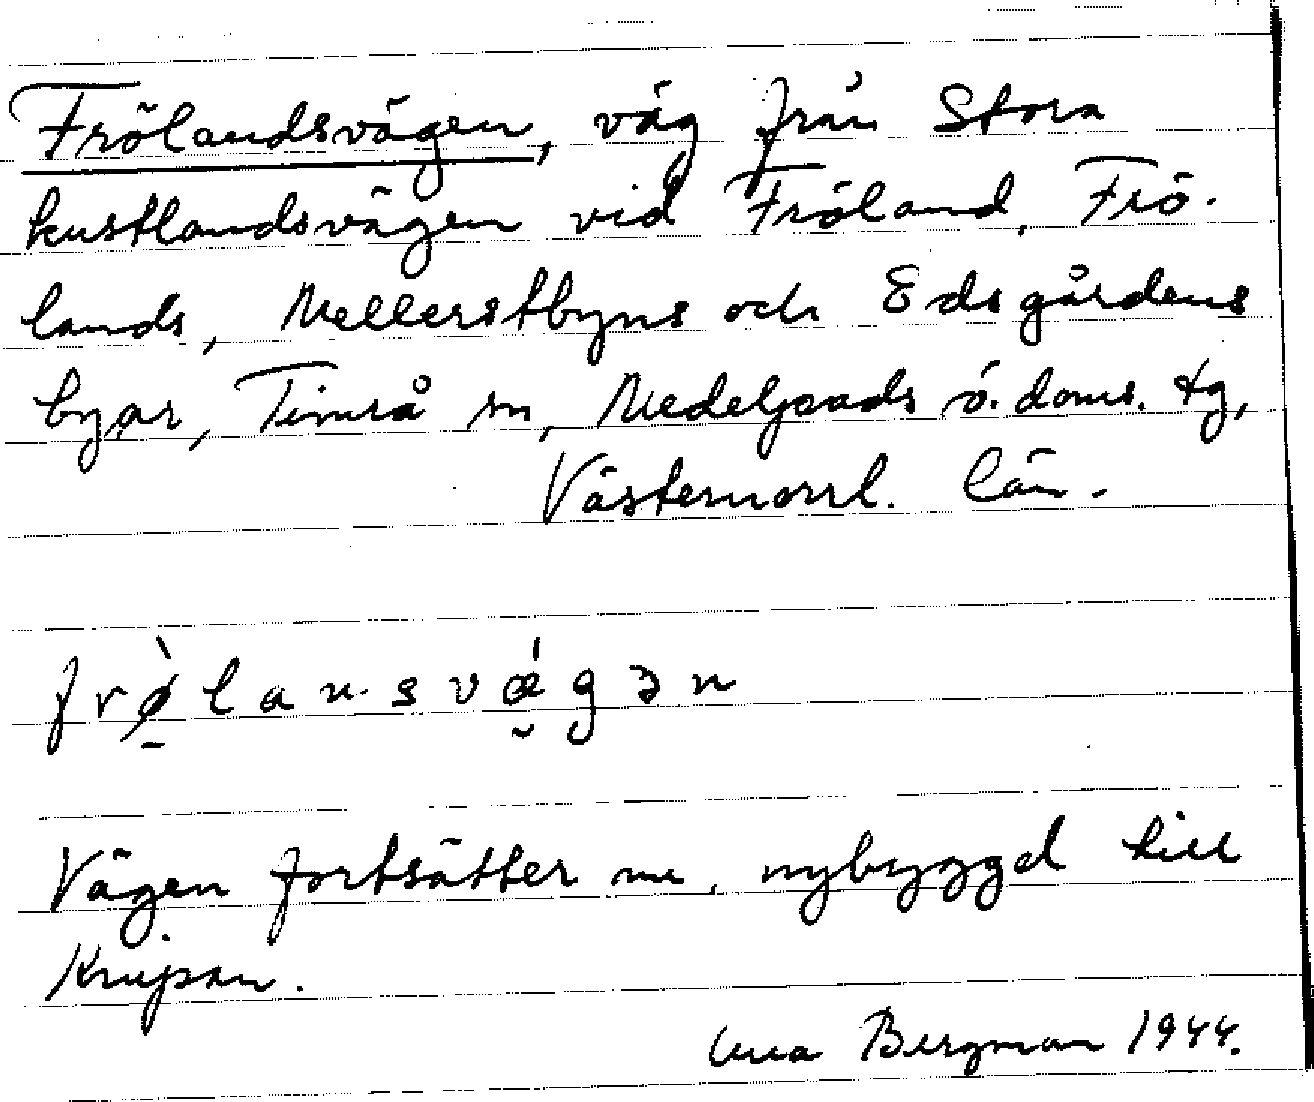 Frölandsvägen, väg från Stora
kustlandsvägen vid Fröland, Frö-
lands, Mellerstbyns och Edsgårdens
byar, Timrå sn, Medelpads ö. doms. tg,
Västernorrl. län.
frø̀lansvǽgən
Vägen fortsätter nu, nybyggd till
Knipan.
Bergman 1944.